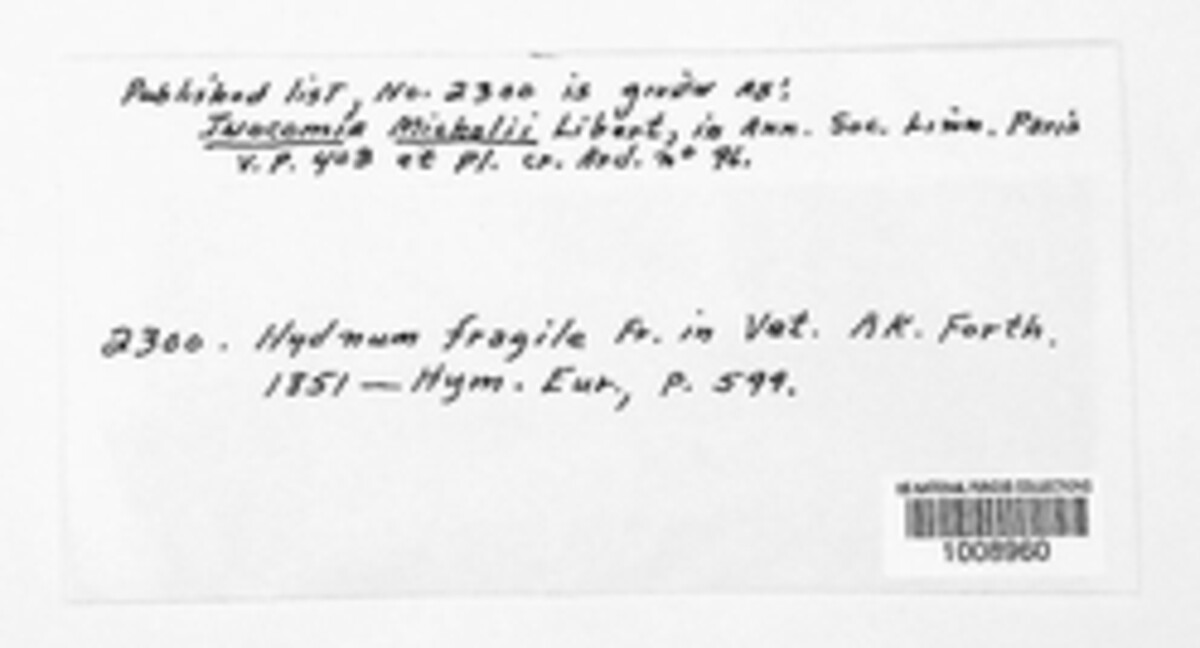 Published list, No. 2300 is given as:
Inocomia Michelii Libert, in Ann. Soc. Linn. Paris
V. P. 403 et Pl. cr. Ard. n° 96.
2300. Hydnum fragile Fr. in Vet. AK. Forth.
1851 — Hym. Eur., p. 599.
US NATIONAL FUNGUS COLLECTIONS
1008960